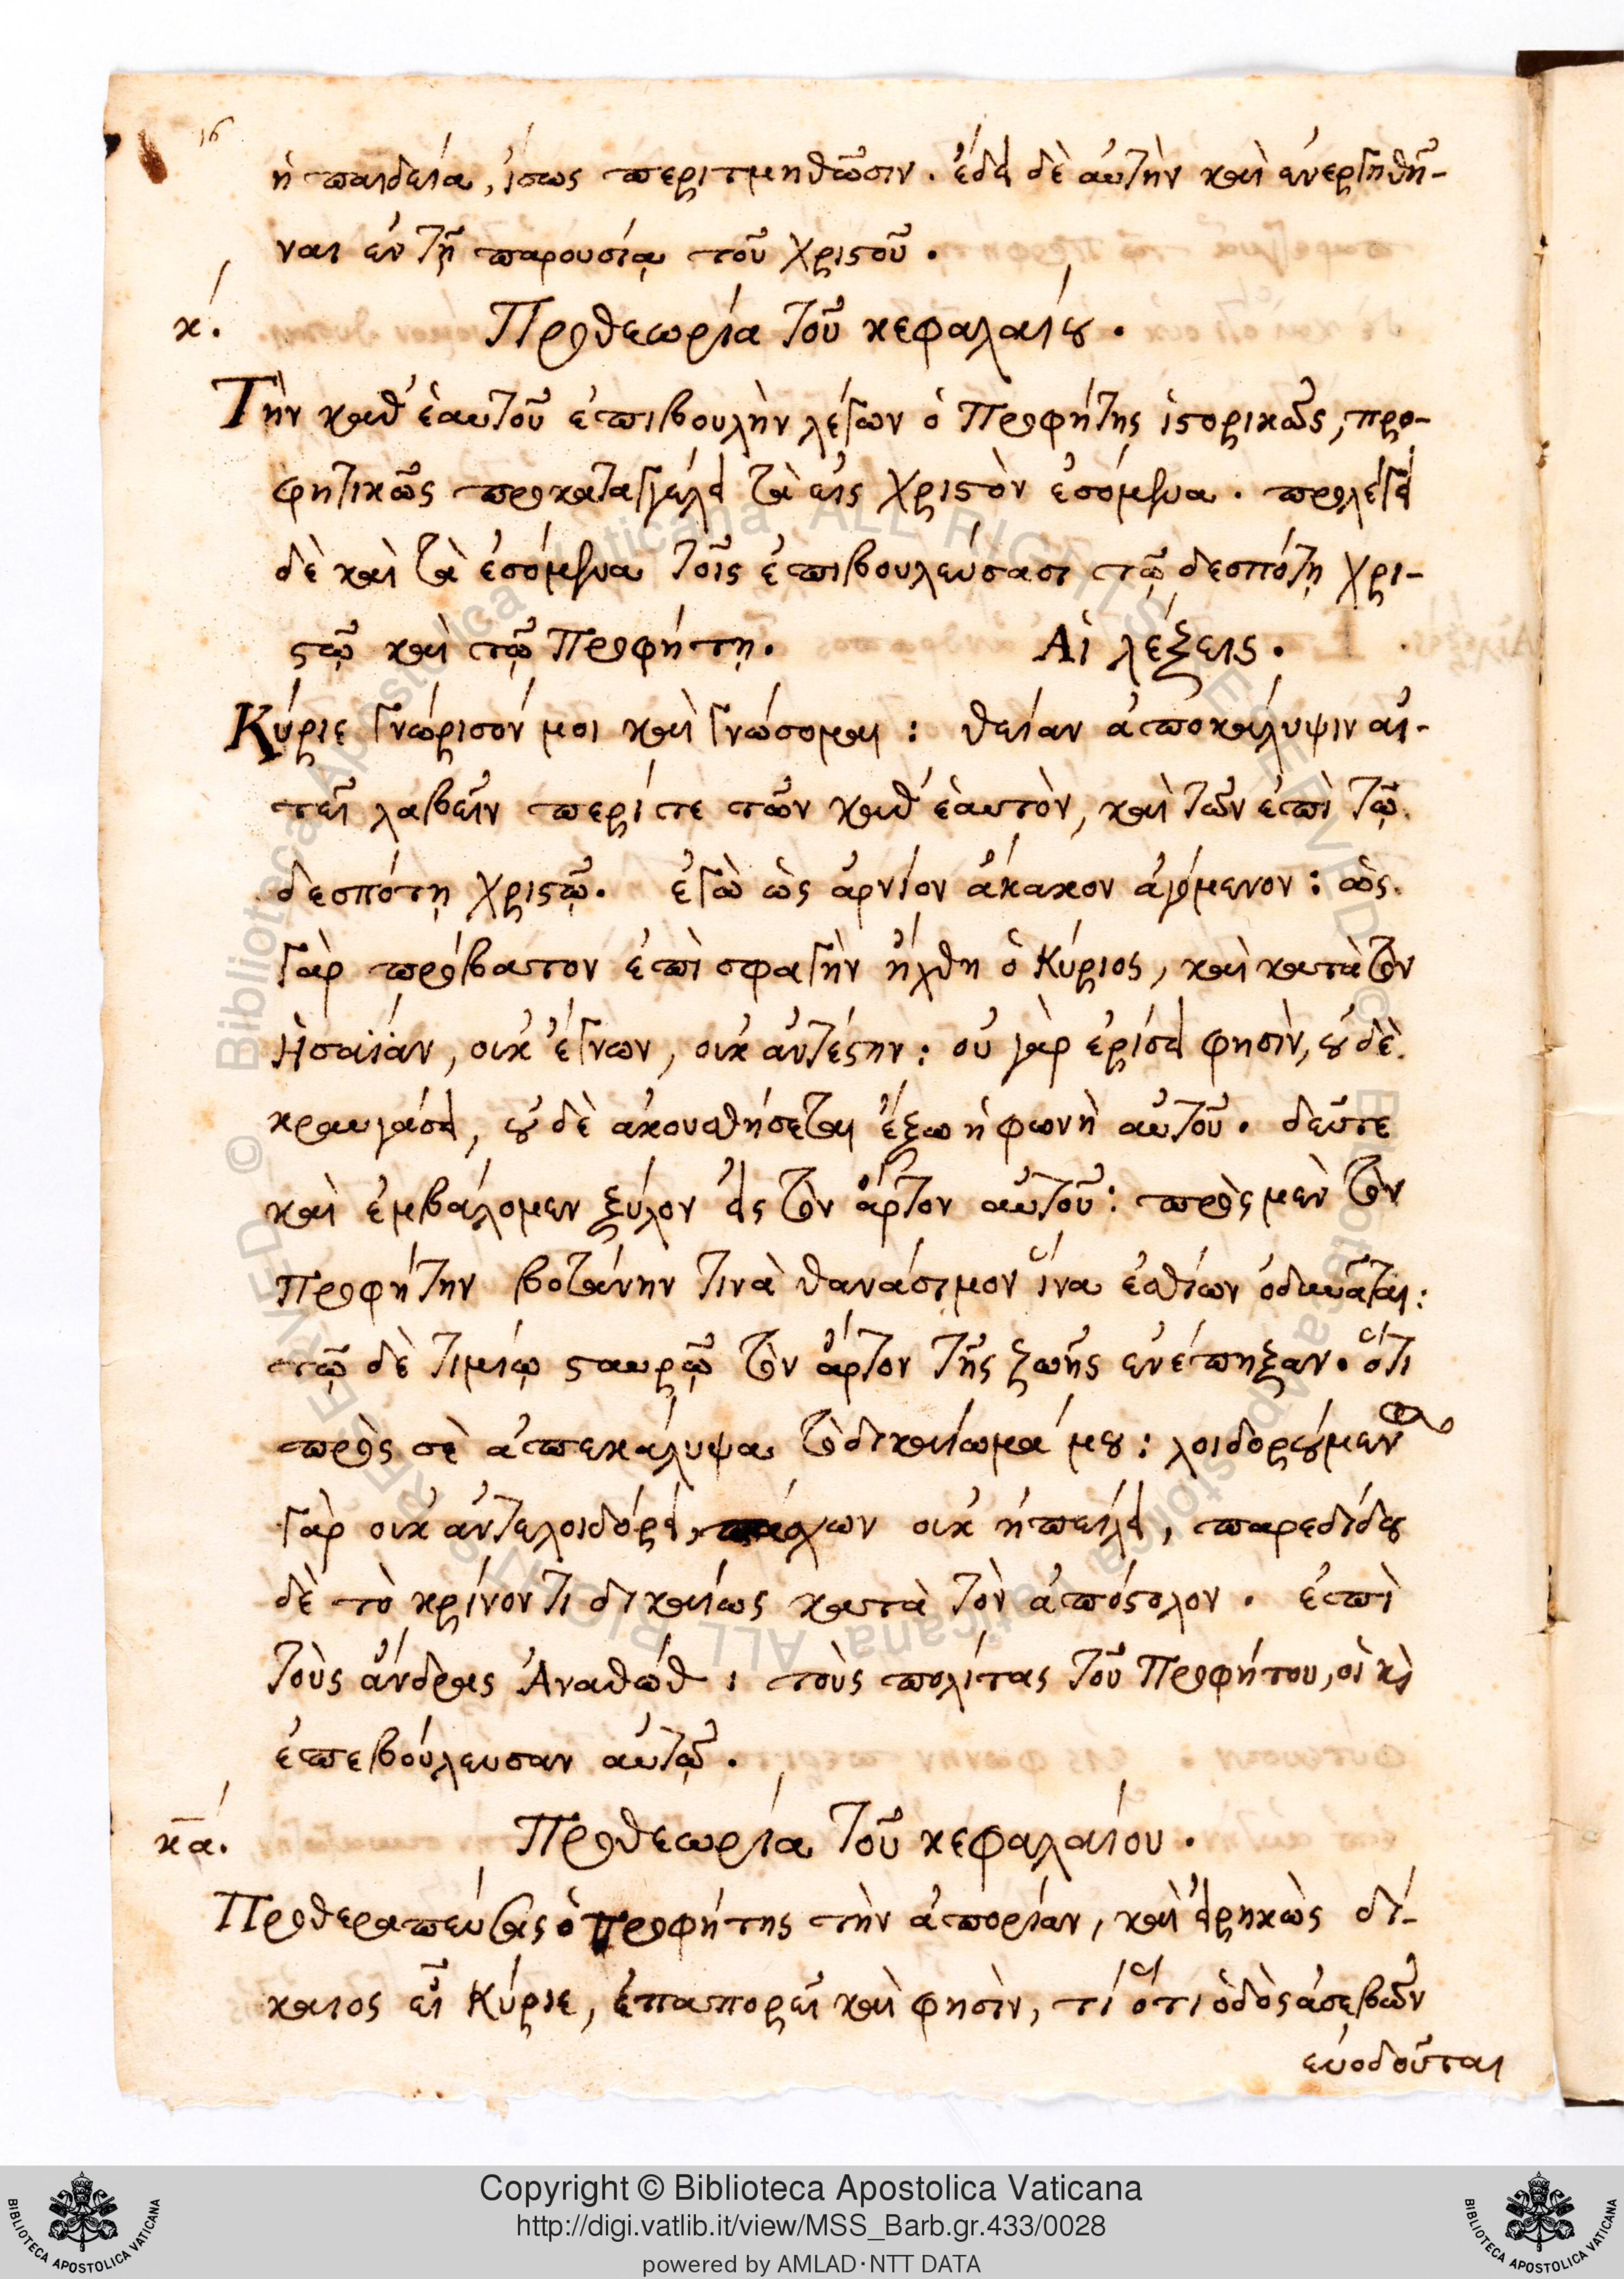 16
ἡ παιδεία, ἴσως περιτμηθῶσιν. ἔδει δὲ αὐτὴν καὶ ἐνεργηθῆ-
ναι ἐν τῇ παρουσίᾳ τοῦ Χριστοῦ.
κ´. Προθεωρία τοῦ κεφαλαίου.
Τὴν καθ' ἑαυτοῦ ἐπιβουλὴν λέγων ὁ Προφήτης ἱστορικῶς, προ-
φητικῶς προκαταγγέλει τὰ εἰς Χριστὸν ἐσόμενα. προλέγει
δὲ καὶ τὰ ἐσόμενα τοῖς ἐπιβουλεύσασι τῷ δεσπότῃ Χρι-
στῷ καὶ τῷ Προφήτῃ. Αἱ λέξεις.
Κύριε γνώρισόν μοι καὶ γνώσομαι: θείαν ἀποκάλυψιν αἰ-
τεῖ λαβεῖν περί τε τῶν καθ' ἑαυτὸν, καὶ τῶν ἐπὶ τῷ
δεσπότῃ Χριστῷ. ἐγὼ ὡς ἀρνίον ἄκακον ἀγόμενον: ὡς
γὰρ πρόβατον ἐπὶ σφαγὴν ἤχθη ὁ Κύριος, καὶ κατὰ τὸν
Ἠσαΐαν, οὐκ ἔγνων, οὐκ ἀντέστην: οὐ γὰρ ἐρίσει φησὶν, οὐδὲ
κραυγάσει, οὐδὲ ἀκουσθήσεται ἔξω ἡ φωνὴ αὐτοῦ. δεῦτε
καὶ ἐμβάλομεν ξύλον εἰς τὸν ἄρτον αὐτοῦ: πρὸς μὲν τὸν
Προφήτην βοτάνην τινὰ θανάσιμον ἵνα ἐσθίων ὀδυνᾶται:
τῷ δὲ τιμίῳ σταυρῷ τὸν ἄρτον τῆς ζωῆς ἐνέπηξαν. ὅτι
πρὸς σὲ ἀπεκάλυψα τὸ δικαίωμά μου: λοιδορούμενος
γὰρ οὐκ ἀντελοιδόρει, πάσχων οὐκ ἠπείλει, παρεδίδου
δὲ τὸ κρίνοντι δικαίως κατὰ τὸν ἀπόστολον. ἐπὶ
τοὺς ἄνδρας Ἀναθώθ: τοὺς πολίτας τοῦ Προφήτου, οἳ καὶ
ἐπεβούλευσαν αὐτῷ.
κα´. Προθεωρία τοῦ κεφαλαίου.
Προθεραπεύσας ὁ Προφήτης τὴν ἀπορίαν, καὶ εἰρηκὼς δί-
καιος εἶ Κύριε, ἐπαπορεῖ καὶ φησὶν, τί ὅτι ὁδὸς ἀσεβῶν
εὐοδοῦται
Copyright © Biblioteca Apostolica Vaticana
http://digi.vatlib.it/view/MSS_Barb.gr.433/0028
powered by AMLAD·NTT DATA